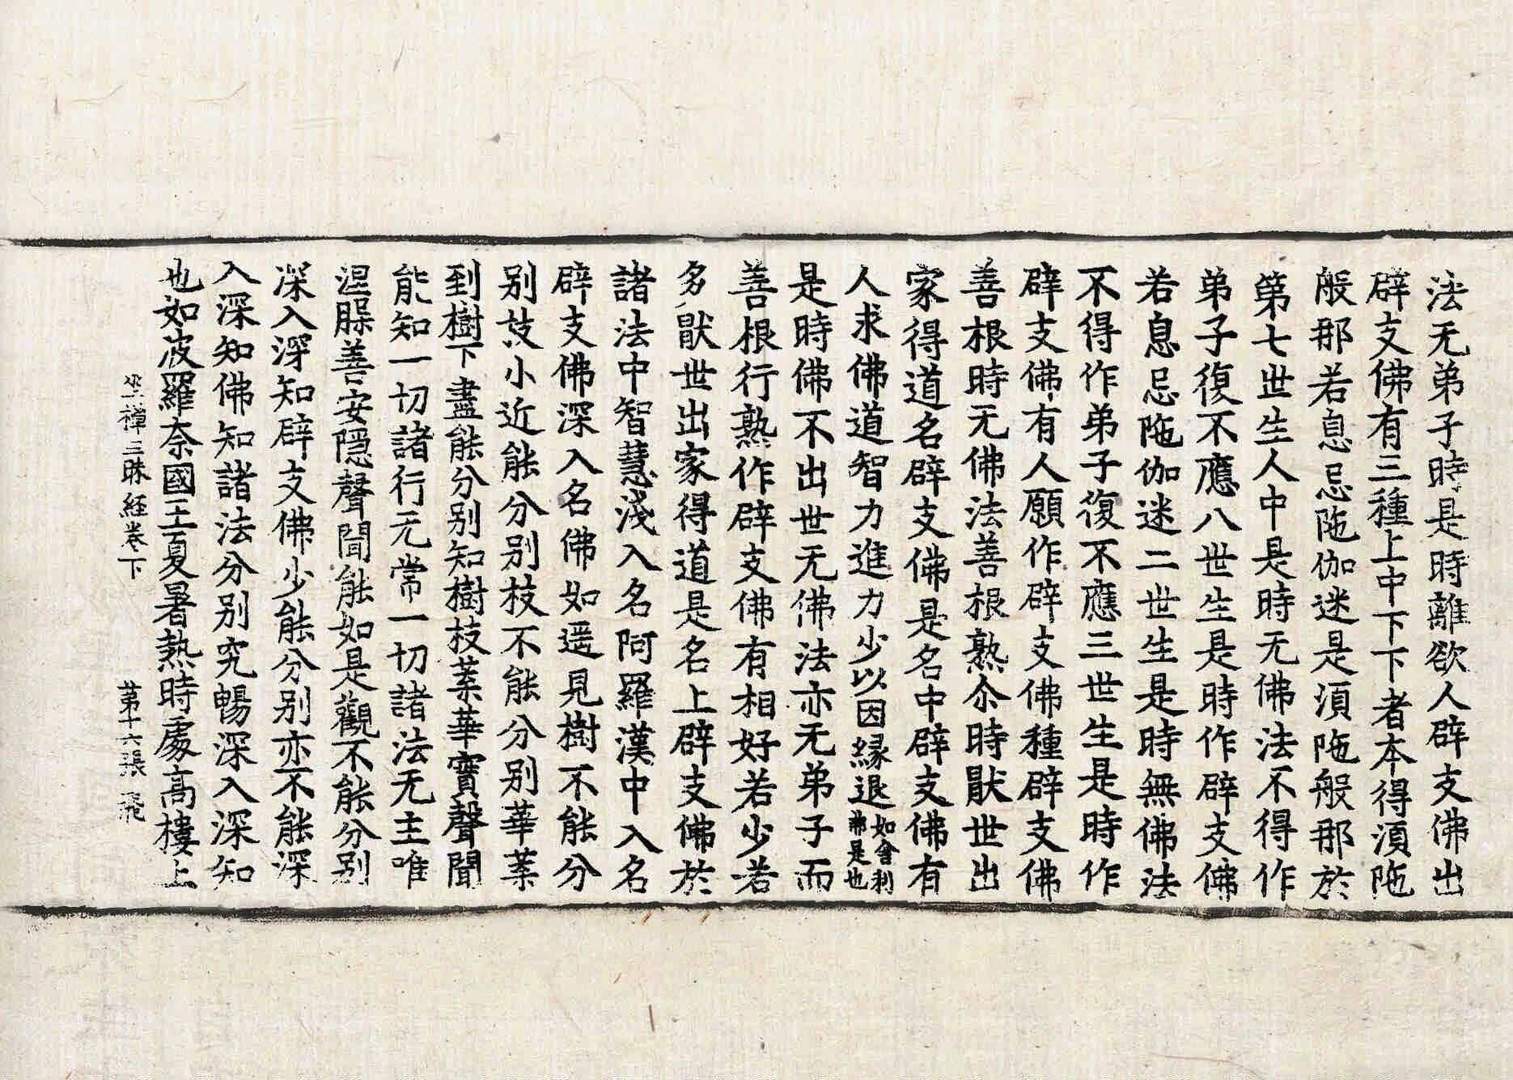 法无弟子時是時離欲人辟支佛出
辟支佛有三種上中下下者本得湏陁
般那若息忌陁伽迷是湏陁般那於
第七世生人中是時无佛法不得作
弟子復不應八世生是時作辟支佛
若息忌陁伽迷二世生是時無佛法
不得作弟子復不應三世生是時作
辟支佛有人願作辟支佛種辟支佛
善根時无佛法善根熟尒時猒世出
家得道名辟支佛是名中辟支佛有
人求佛道智力進力少以因縁退如舍利弗是也
是時佛不出世无佛法亦无弟子而
善根行熟作辟支佛有相好若少若
多猒世出家得道是名上辟支佛於
諸法中智慧淺入名阿羅漢中入名
辟支佛深入名佛如遥見樹不能分
别枝小近能分别枝不能分别華葉
到樹下盡能分别知樹枝葉華實聲聞
能知一切諸行无常一切諸法无主唯
涅槃善安隠聲聞能如是觀不能分别
深入深知辟支佛少能分别亦不能深
入深知佛知諸法分别究暢深入深知
也如波羅奈國王夏暑熱時處髙樓上
坐禪三昧経卷下 第十六張 飛